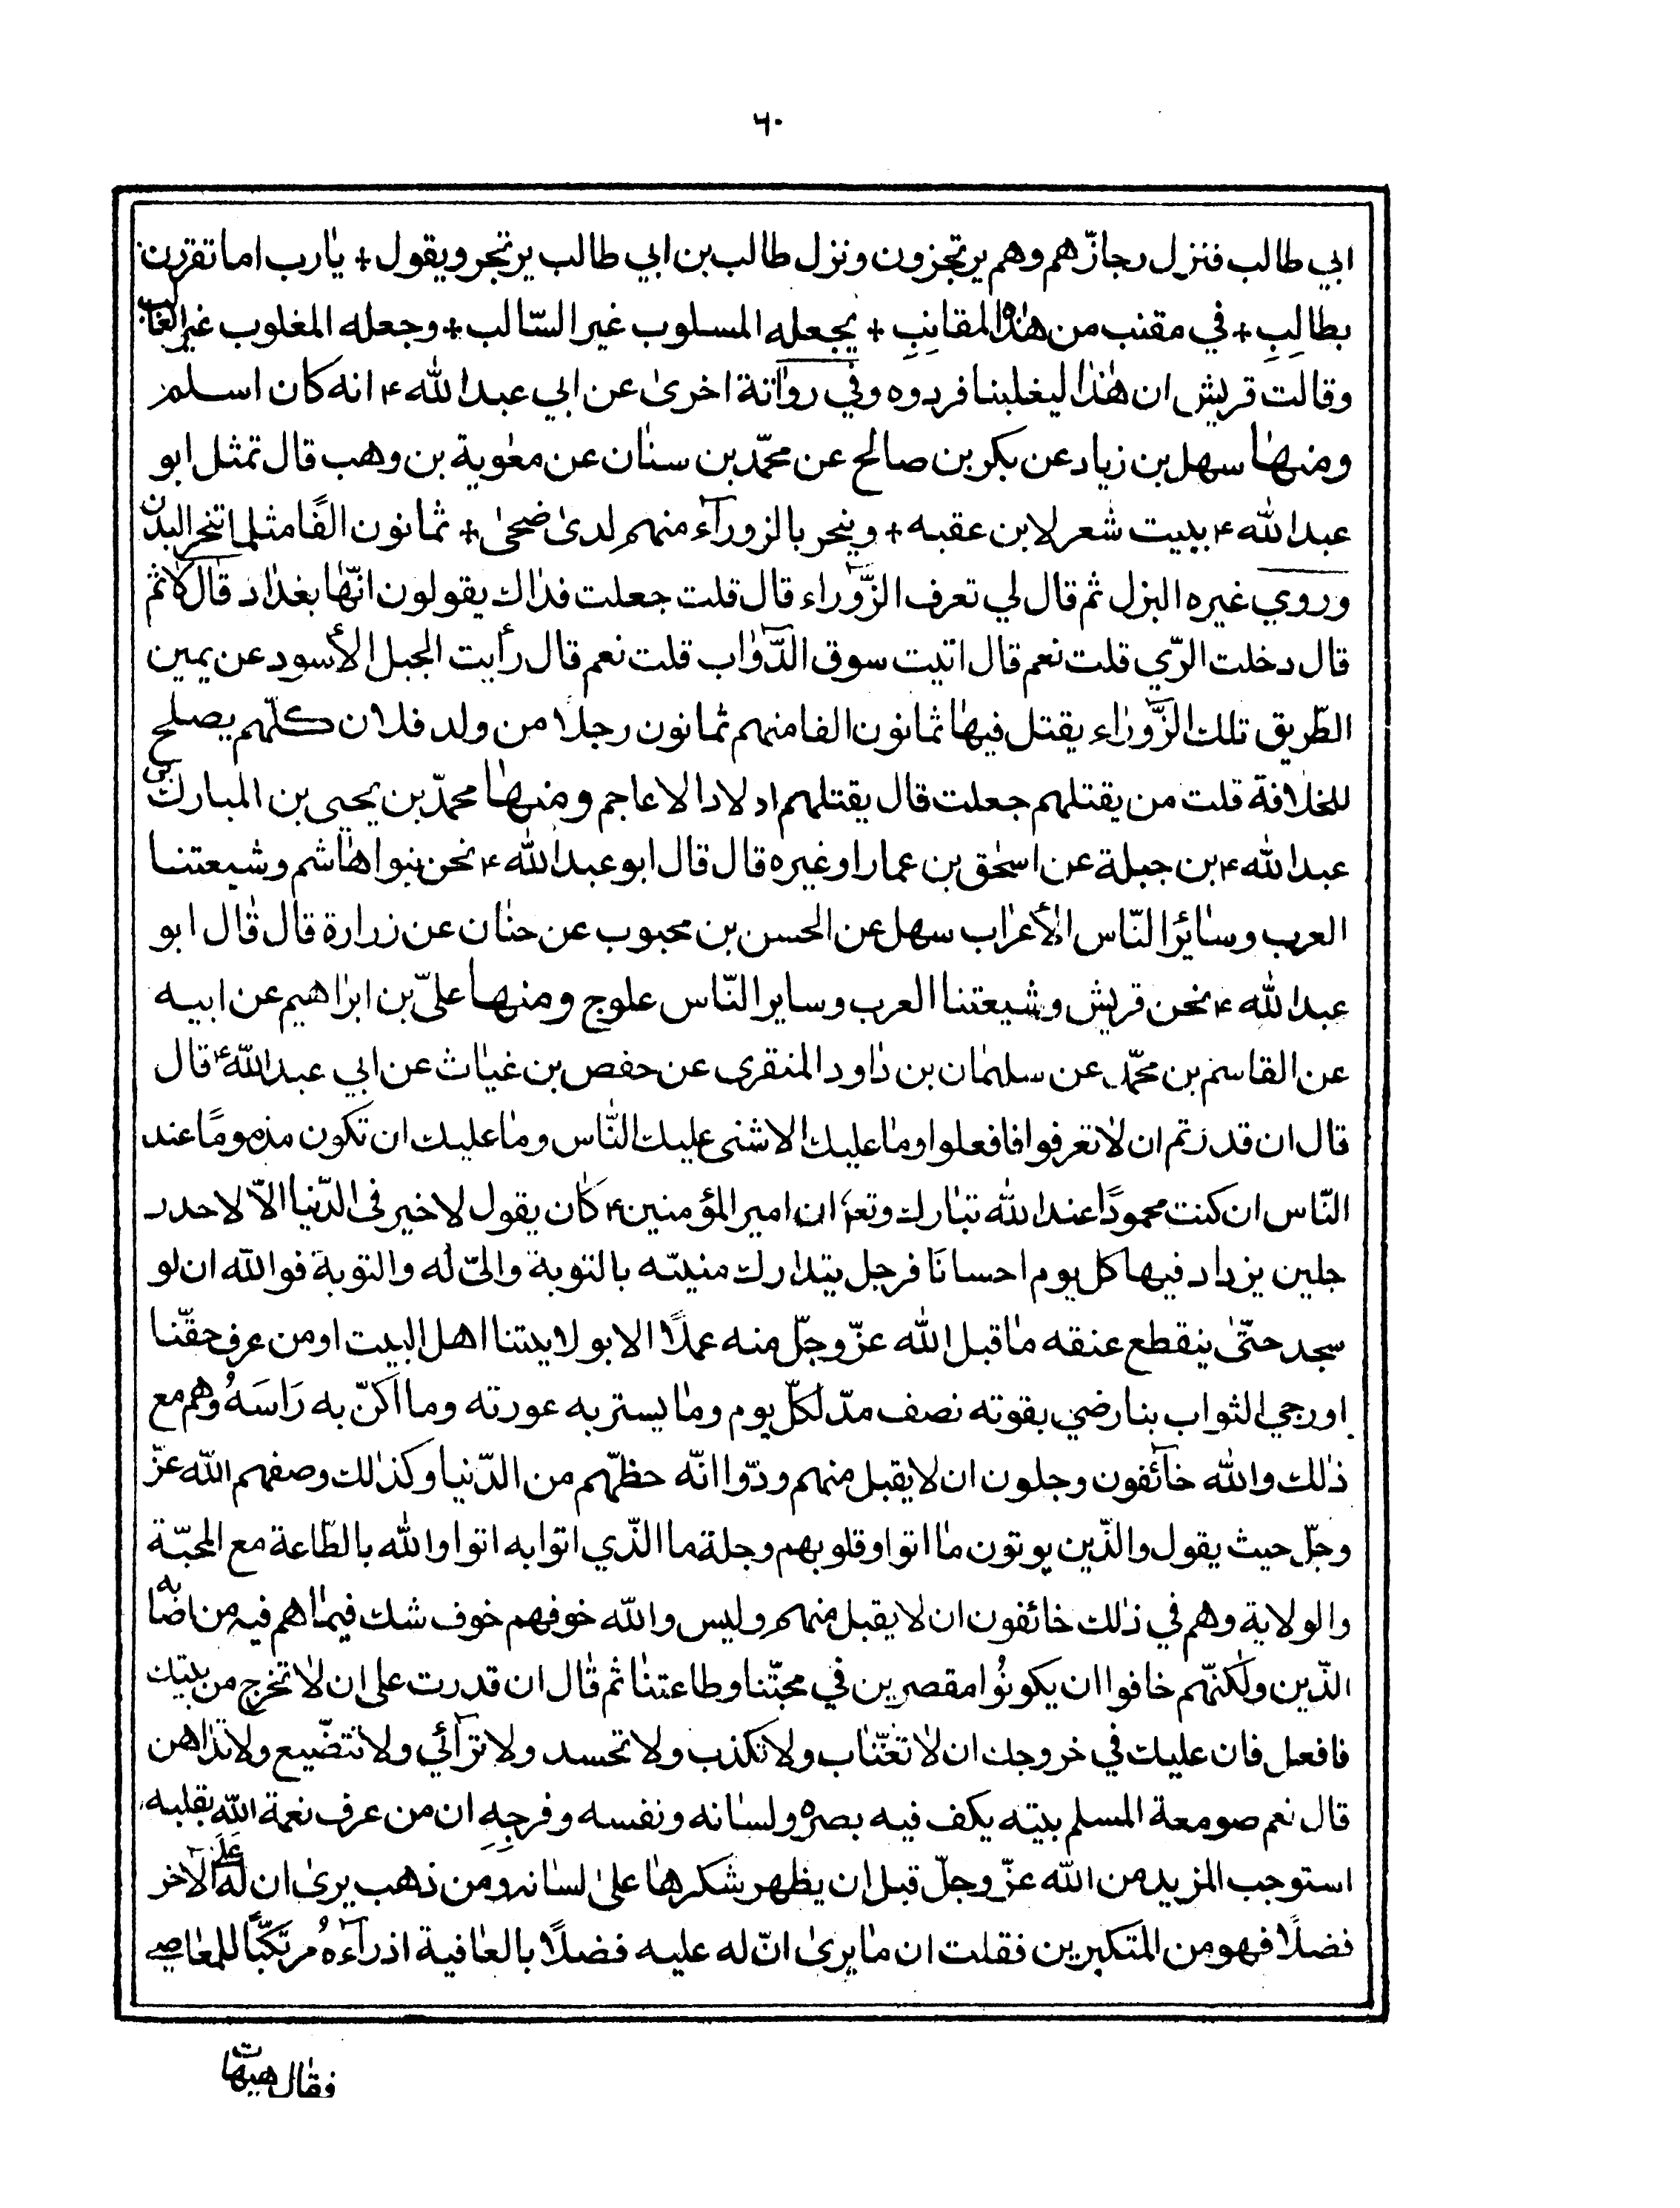 ٦٠
ابي طالب فنزل رجازّهم وهم يرتجزون ونزل طالب بن ابي طالب يرتجز ويقول + يارب اما تقزرن
بطالبِ + في مقنب من هذه المقانبِ + يجعله المسلوب غير السّالب + وجعله المغلوب غير الغالب
وقالت قريش ان هٰذا ليغلبنا فردوه وفي رواتة اخرىٰ عن ابي عبدالله ع انه كان اسلم
ومنها سهل بن زياد عن بكر بن صالح عن محمّد بن سنان عن معٰوية بن وهب قال تمثل ابو
عبدالله ع ببيت شعر لابن عقبه + وينحر بالزورآء منهم لدىٰ ضحىٰ + ثمانون الفًا مثلما تنحر البدن
وروي غيره البزل ثم قال لي تعرف الزّوراء قال قلت جعلت فداك يقولون انّها بغداد قال لا ثم
قال دخلت الرّي قلت نعم قال اتيت سوق الدّواب قلت نعم قال رأيت الجبل الأسود عن يمين
الطّريق تلك الزّوراء يقتل فيها ثمانون الفا منهم ثمانون رجلا من ولد فلان كلّهم يصلح
للخلافة قلت من يقتلهم جعلت قال يقتلهم اولاد الاعاجم ومنها محمدّ بن يحيى بن المبارك عن
عبدالله ع بن جبلة عن اسحٰق بن عمار اوغيره قال قال ابوعبدالله ع نحن بنوا هاشم وشيعتنا
العرب وسائر النّاس الأعراب سهل عن الحسن بن محبوب عن حنان عن زرارة قال قال ابو
عبدالله ع نحن قريش وشيعتنا العرب وساير النّاس علوج ومنها عليّ بن ابراهيم عن ابيه
عن القاسم بن محمّد عن سليمان بن داود المنقرى عن حفص بن غياث عن ابي عبدالله ع قال
قال ان قدرتم ان لا تعرفوا فافعلوا وما عليك الا شنى عليك النّاس وما عليك ان تكون مذمومًا عند
النّاس ان كنت محمودًا عند الله تبارك وتعٰ ان امير المؤمنين ع كان يقول لا خير في الدّنيا الاّ لاحد ر
جلين يزداد فيها كل يوم احسانا فرجل يتدارك منيته بالتوبة والىّ له والتوبة فوالله ان لو
سجد حتّىٰ ينقطع عنقه ما قبل الله عزّوجلّ منه عملًا الا بولايتنا اهل البيت اومن عرف حقّنا
اورجي الثواب بنا رضي بقوته نصف مدّ لكلّ يوم وما يستر به عورته وما اكنّ به رَاسَهُ وهم مع
ذٰلك والله خآئفون وجلون ان لا يقبل منهم ودّوا انّه حظّهم من الدّنيا وكذٰلك وصفهم الله عزّ
وجلّ حيث يقول والذّين يوتون ما اتوا وقلوبهم وجلة ما الذّي اتوا به اتوا والله بالطّاعة مع المحبّة
والولاية وهم في ذٰلك خائفون ان لا يقبل منهم وليس والله خوفهم خوف شك فيما هم فيه من اضابه
الدّين ولٰكنّهم خافوا ان يكونُوا مقصرين في محبّتنا وطاعتنا ثم قال ان قدرت على ان لا تخرج من بيتك
فافعل فان عليك في خروجك ان لا تغتّاب ولا تكذب ولا تحسد ولا ترآئي ولا تتضّيع ولا تداهن
قال نعم صومعة المسلم بيته يكف فيه بصره ولسانه ونفسه وفرجِهِ ان من عرف نعمة الله بقلبه
استوجب المزيد من الله عزّوجلّ قبل ان يظهر شكرها علىٰ لسانه ومن ذهب يرىٰ ان له عَلَى الآخر
فضلًا فهو من المتكبرين فقلت ان ما يرىٰ انّ له عليه فضلًا بالعافية اذ رآءهُ مرتكبًا للمعاصي
فقال هيهات